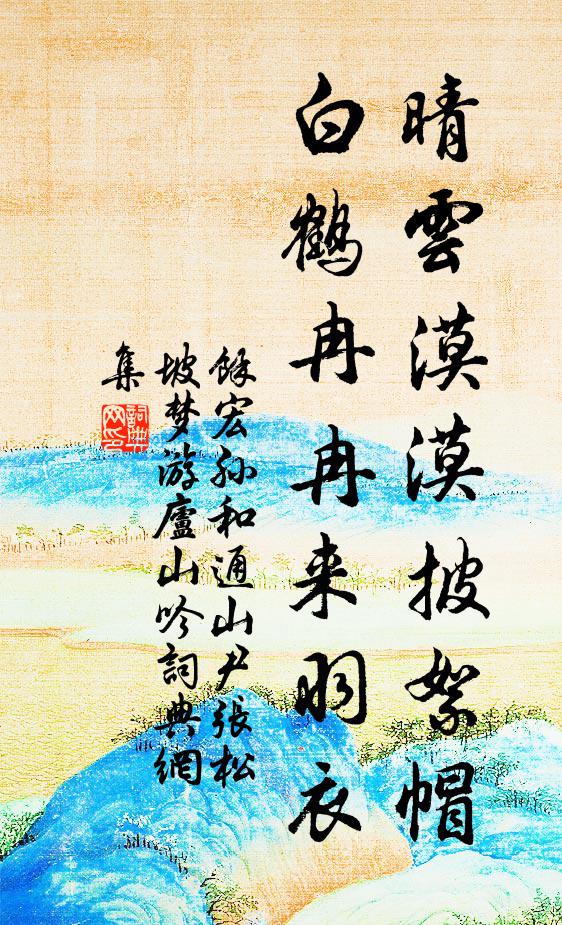 晴雲漠漠披絮帽
白鶴冉冉来羽衣
餘宏孙和通山尹張松
坡梦游廬山吟詞典網
集
詞典网印